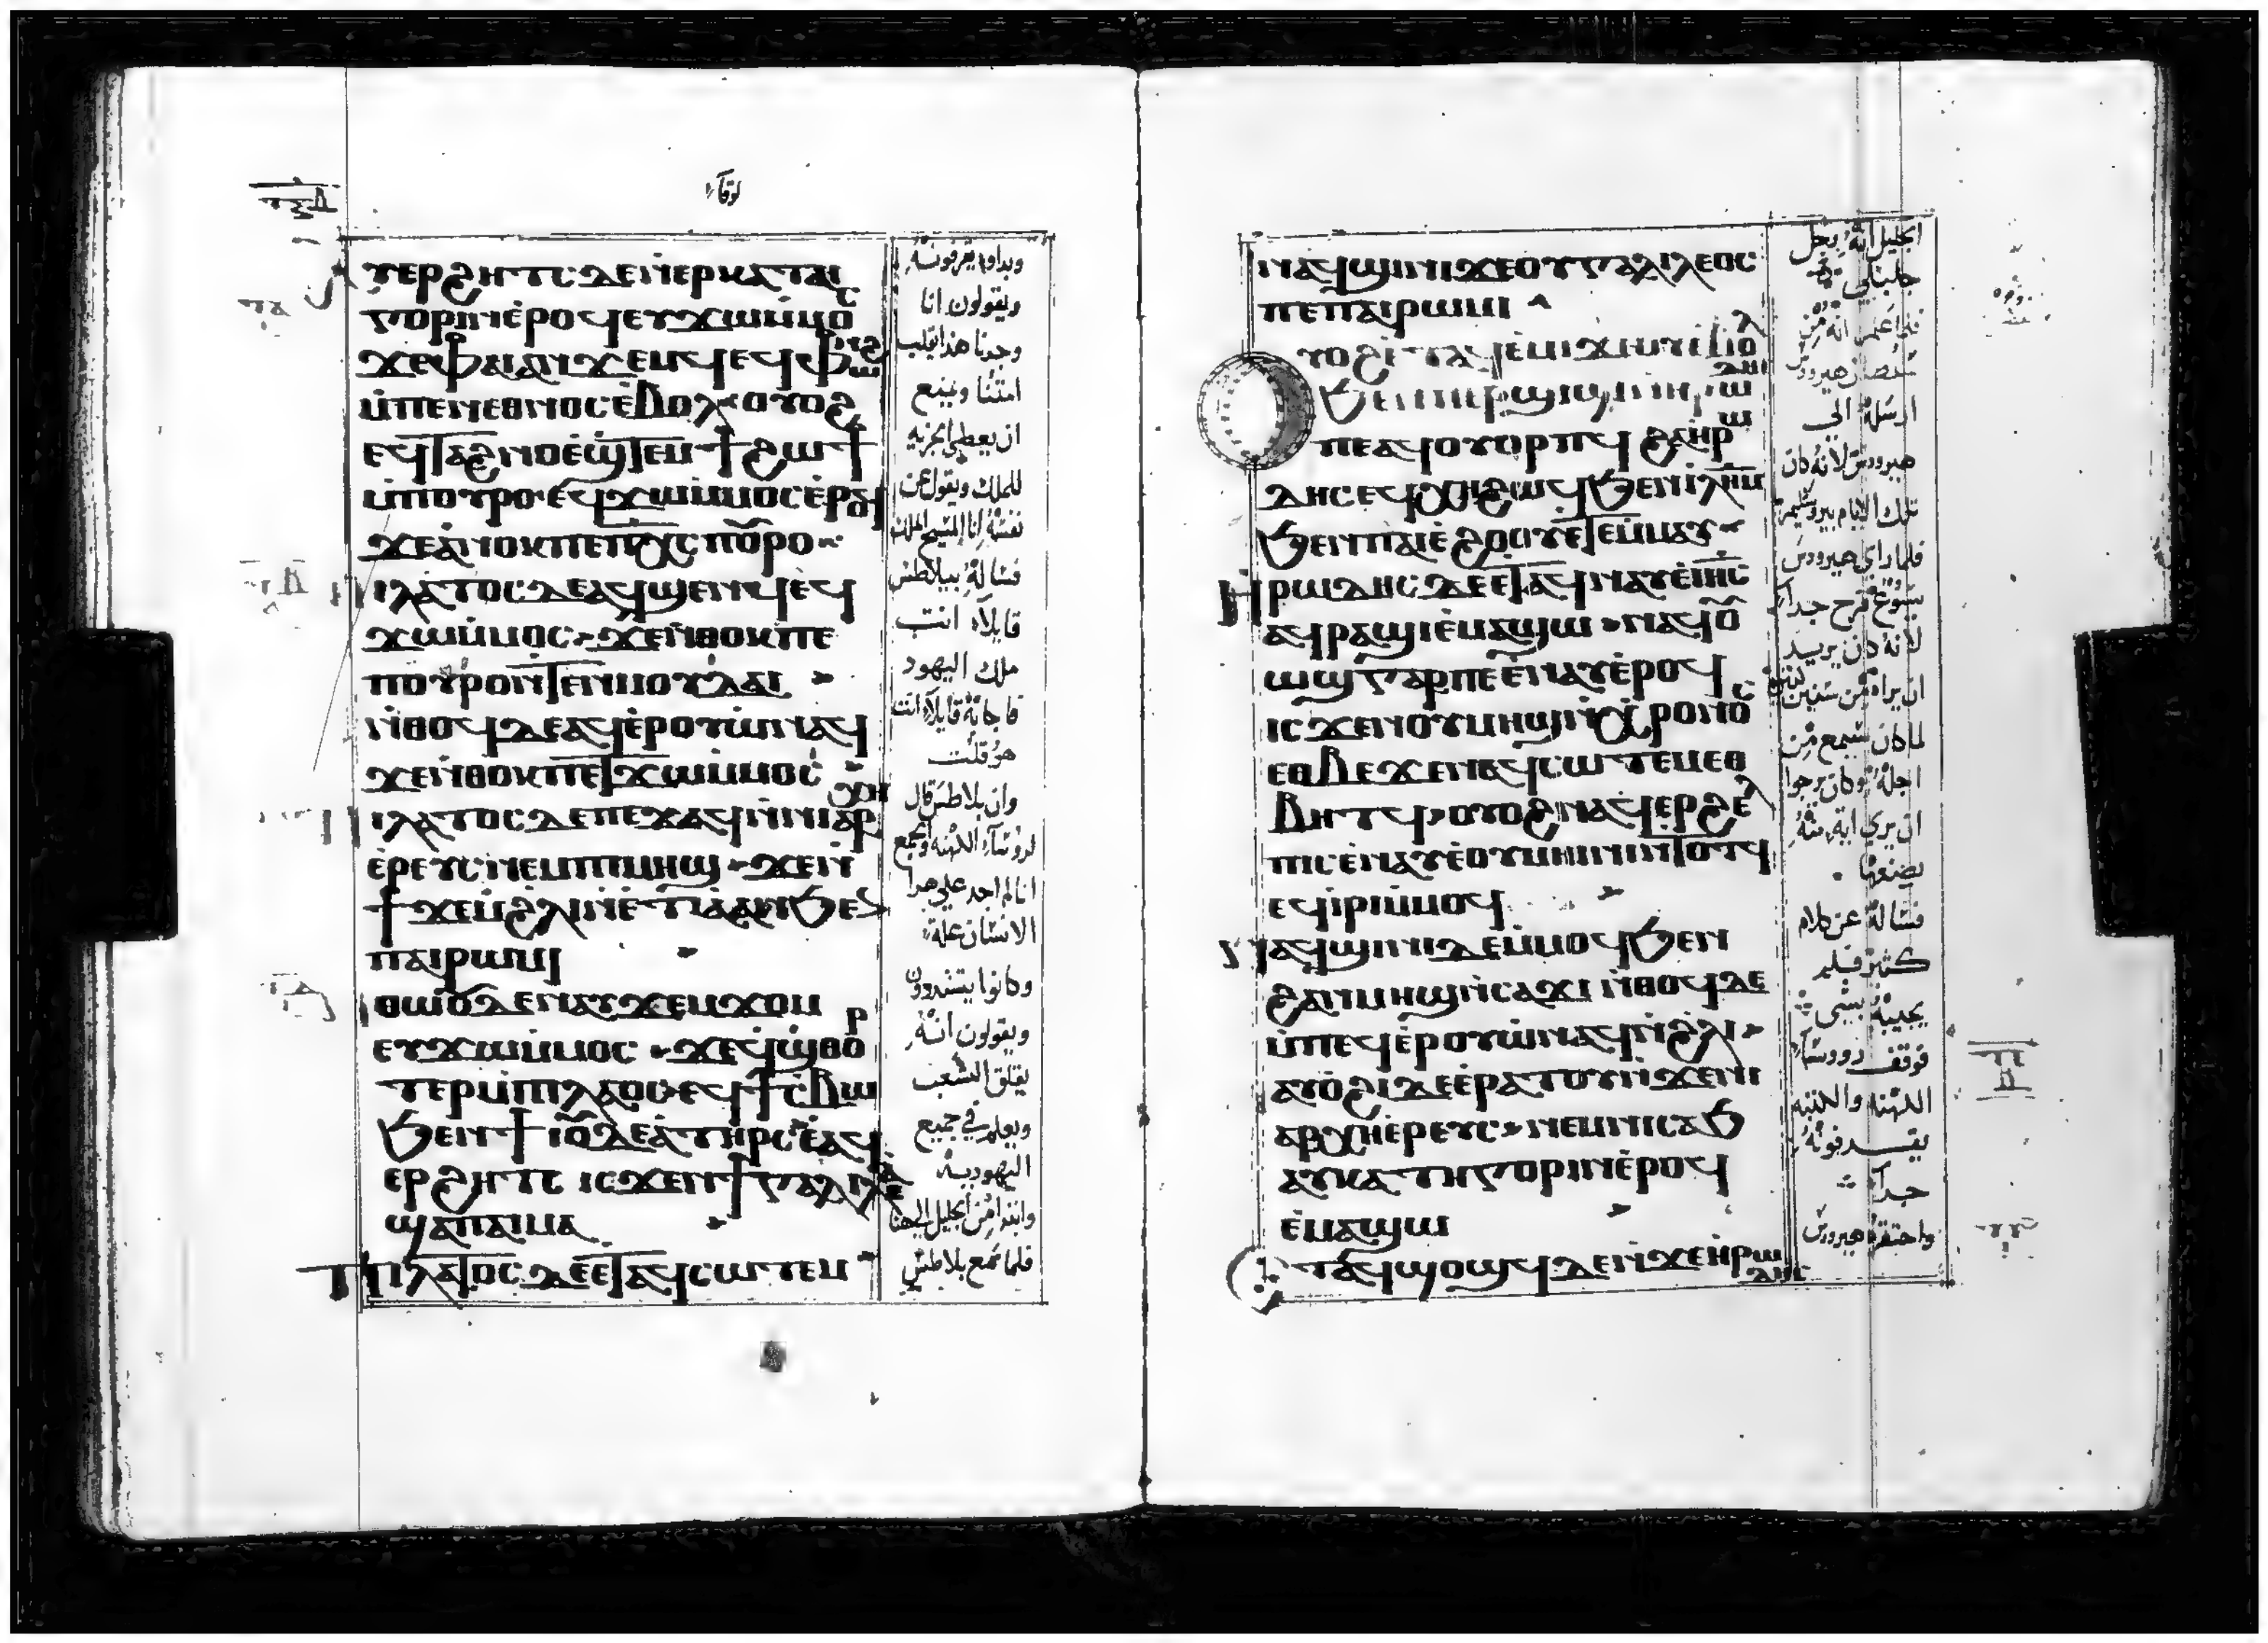 لوقا
ⲩⲉⲣϩⲏⲧⲥ ⲇⲉ ⲛ̀ⲉⲣⲕⲁⲧⲏ
ⲅⲟⲣⲓⲛ ⲉ̀ⲣⲟϥ ⲉⲩϫⲱ ⲙ̀ⲙⲟⲥ
ϫⲉ ⲫⲁⲓ ⲁⲛϫⲉⲙϥ ⲉϥⲫⲱⲛϩ
ⲙ̀ⲡⲉⲛⲉⲑⲛⲟⲥ ⲉ̀ⲃⲟⲗ ⲟⲩⲟϩ
ⲉϥⲧⲁϩⲛⲟ ⲉ̀ϣⲧⲉⲙϯϩⲱϯ
ⲙ̀ⲡⲟⲩⲣⲟ ⲉϥϫⲱ ⲙ̀ⲙⲟⲥ ⲉ̀ⲣⲟϥ
ϫⲉ ⲁ̀ⲛⲟⲕ ⲡⲉ ⲡⲭ̅ⲥ̅ ⲡⲟⲩⲣⲟ
ⲡⲓⲗⲁⲧⲟⲥ ⲇⲉ ⲁϥϣⲉⲛϥ ⲉϥ
ϫⲱ ⲙ̀ⲙⲟⲥ ϫⲉ ⲛ̀ⲑⲟⲕ ⲡⲉ
ⲡⲟⲩⲣⲟ ⲛ̀ⲧⲉ ⲛⲓⲓⲟⲩⲇⲁⲓ
ⲛ̀ⲑⲟϥ ⲇⲉ ⲁϥⲉ̀ⲣⲟⲩⲱ̀ ⲛⲁϥ
ϫⲉ ⲛ̀ⲑⲟⲕ ⲡⲉⲧϫⲱ ⲙ̀ⲙⲟⲥ
ⲡⲓⲗⲁⲧⲟⲥ ⲇⲉ ⲡⲉϫⲁϥ ⲛ̀ⲛⲓⲁⲣⲭⲏ
ⲉ̀ⲣⲉⲩⲥ ⲛⲉⲙ ⲡⲓⲙⲏϣ ϫⲉ ⲛ̀
ϯϫⲉⲙ ϩⲗⲓ ⲛ̀ⲉ̀ⲧⲓⲁ ⲁⲛ ϧⲉⲛ
ⲡⲁⲓⲣⲱⲙⲓ
ⲛ̀ⲑⲱⲟⲩ ⲇⲉ ⲛⲁⲩϫⲉⲙϫⲟⲙ
ⲉⲩϫⲱ ⲙ̀ⲙⲟⲥ ϫⲉ ϥϣⲑⲟⲣ
ⲧⲉⲣ ⲙ̀ⲡⲓⲗⲁⲟⲥ ⲉϥϯⲥ̀ⲃⲱ
ϧⲉⲛ ϯⲓⲟⲩⲇⲉⲁ ⲧⲏⲣⲥ ⲉ̀ⲁϥ
ⲉⲣϩⲏⲧⲥ ⲓⲥϫⲉⲛ ϯⲅⲁⲗⲓⲗⲉⲁ
ϣⲁ ⲡⲁⲓⲙⲁ
ⲡⲓⲗⲁⲧⲟⲥ ⲇⲉ ⲉⲧⲁϥⲥⲱⲧⲉⲙ
وبداوا يقرفونه
ويقولون انا
وجدنا هذا يقلب
امتنا ويمنع
ان يعطى الجزيه
للملك ويقول عن
نفسه انا المسيح الملك
فساله بيلاطس
قايلا انت
ملك اليهود
فاجابه قايلا انت
هو قلت
وان بلاطس قال
لروساء الكهنه والجمع
انا لم اجد على هدا
الانسان علة
وكانوا يتشددون
ويقولون انه
يقلق الشعب
ويعلم في جميع
اليهودية
وابتدا من الجليل الى هنا
فلما سمع بلاطس
ⲛⲁϥϣⲓⲛⲓ ϫⲉ ⲟⲩⲅⲁⲗⲓⲗⲉⲟⲥ
ⲡⲉ ⲡⲁⲓⲣⲱⲙⲓ
ⲟⲩⲟϩ ⲉ̀ⲧⲁϥⲉⲙⲓ ϫⲉ ⲟⲩⲉ̀ⲃⲟⲗ
ϧⲉⲛ ⲡⲉⲣϣⲓϣⲓ ⲛ̀ⲏⲣⲱⲇⲏⲥ
ⲡⲉ ⲁϥⲟⲩⲟⲣⲡϥ ϩⲁ ⲏⲣⲱ
ⲇⲏⲥ ⲉϥⲭⲏ ϩⲱϥ ϧⲉⲛ ⲓ̅ⲗ̅ⲏ̅ⲙ̅
ϧⲉⲛ ⲡⲓⲉ̀ϩⲟⲟⲩ ⲉⲧⲉⲙ̀ⲙⲁⲩ
ⲏⲣⲱⲇⲏⲥ ⲇⲉ ⲉⲧⲁϥⲛⲁⲩ ⲉ̀ⲓⲏ̅ⲥ̅
ⲁϥⲣⲁϣⲓ ⲉ̀ⲙⲁϣⲱ ⲛⲁϥⲟⲩ
ⲱϣ ⲅⲁⲣ ⲡⲉ ⲉ̀ⲛⲁⲩ ⲉ̀ⲣⲟϥ
ⲓⲥϫⲉⲛ ⲟⲩⲙⲏϣ ⲛ̀ⲭⲣⲟⲛⲟⲥ
ⲉⲑⲃⲉ ϫⲉ ⲛⲁϥⲥⲱⲧⲉⲙ ⲉⲑ
ⲃⲏⲧϥ ⲟⲩⲟϩ ⲛⲁϥⲉⲣϩⲉⲗ
ⲡⲓⲥ ⲉ̀ⲛⲁⲩ ⲉ̀ⲟⲩⲙⲏⲓⲛⲓ ⲛ̀ⲧⲟⲧϥ
ⲉϥⲓ̀ⲣⲓ ⲙ̀ⲙⲟϥ
ⲛⲁϥϣⲓⲛⲓ ⲇⲉ ⲙ̀ⲙⲟϥ ϧⲉⲛ
ϩⲁⲛⲙⲏϣ ⲛ̀ⲥⲁϫⲓ ⲛ̀ⲑⲟϥ ⲇⲉ
ⲙ̀ⲡⲉϥⲉ̀ⲣⲟⲩⲱ̀ ⲛⲁϥ ⲛ̀ϩⲗⲓ
ⲁⲩⲟ̀ϩⲓ ⲇⲉ ⲉ̀ⲣⲁⲧⲟⲩ ⲛ̀ϫⲉ ⲛⲓ
ⲁⲣⲭⲏⲉ̀ⲣⲉⲩⲥ ⲛⲉⲙ ⲛⲓⲥⲁϧ
ⲁⲩⲕⲁⲧⲏⲅⲟⲣⲓⲛ ⲉ̀ⲣⲟϥ
ⲉ̀ⲙⲁϣⲱ
ⲉⲧⲁϥϣⲟϣϥ ⲇⲉ ⲛ̀ϫⲉ ⲏⲣⲱⲇⲏⲥ
الجليل انه رجل
جليلي
فلما علم انه من
سلطان هيرودس
ارسله الى
هيرودس لانه كان
تلك الايام بيروشليم
فلما راى هيرودس
يسوع فرح جدا
لانه كان يريد
ان يراه من سنين كثيره
لما كان يسمع من
اجله وكان يرجوا
ان يري ايه منه
يصنعها
فساله عن كلام
كثير فلم
يجيبه بشى
فوقف رووسا
الكهنه والكتبه
يقــدفونه
جدا
واحتقره هيرودس